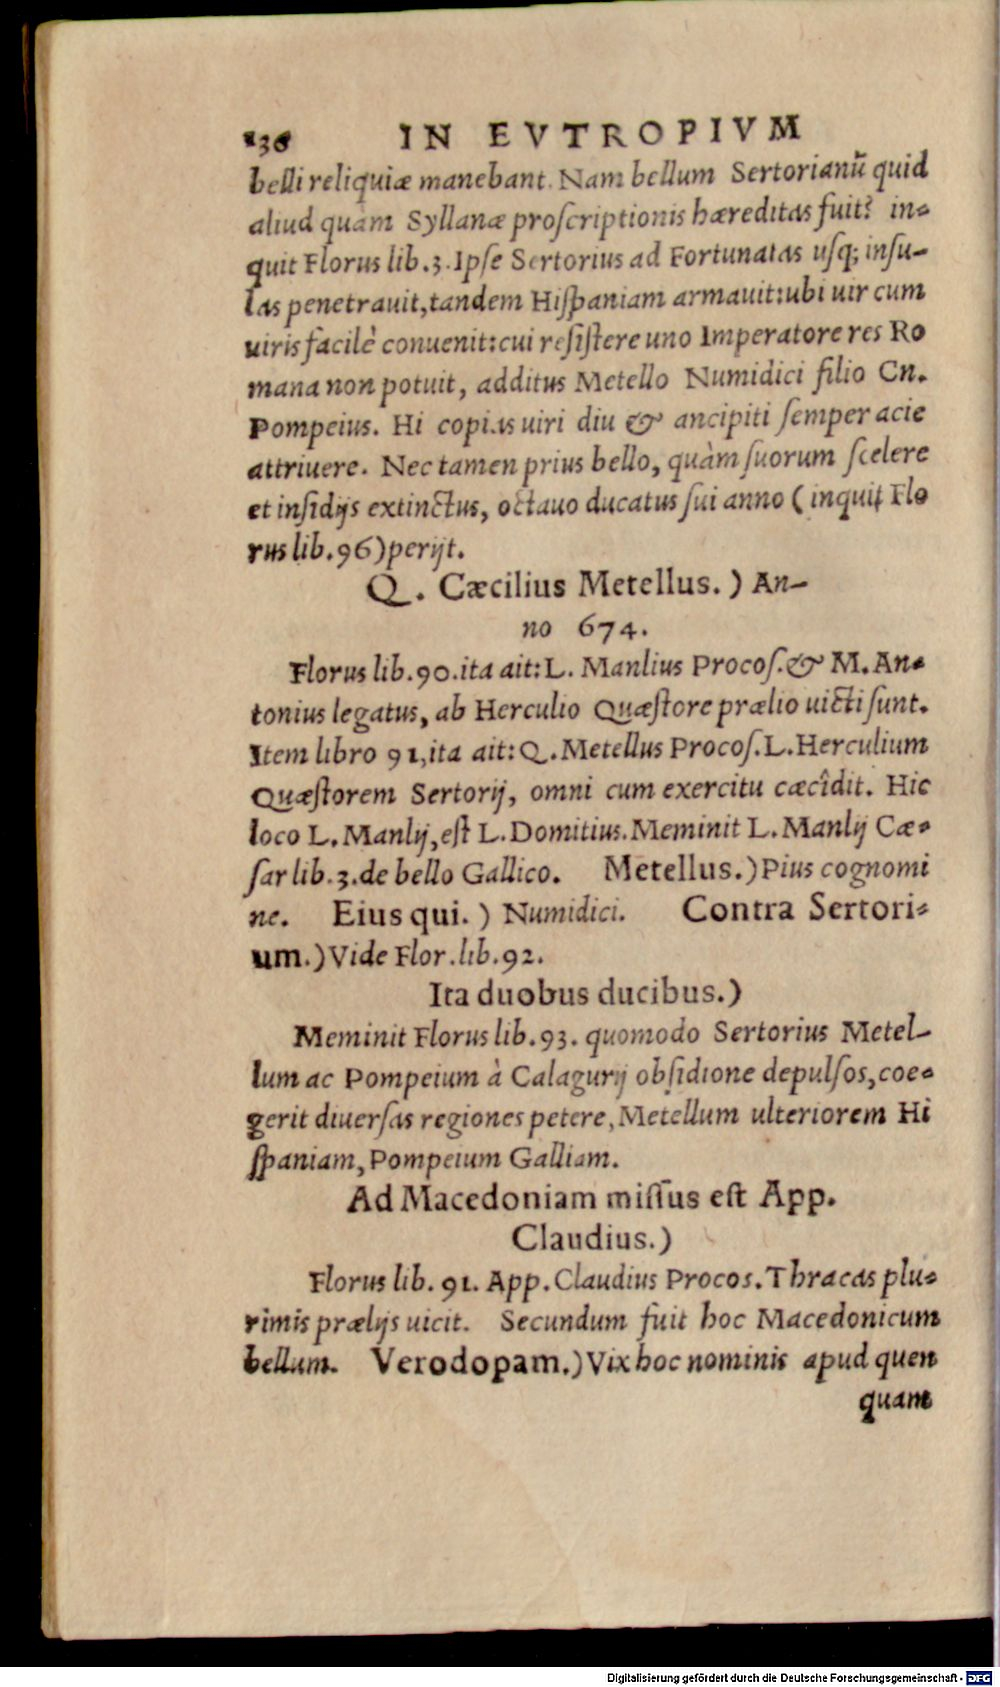 136 IN EVTROPIVM
belli reliquiæ manebant. Nam bellum Sertorianũ quid
aliud quàm Syllanæ proſcriptionis hæreditas fuit? in-
quit Florus lib.3. Ipſe Sertorius ad Fortunatas uſq; inſu-
las penetrauit, tandem Hiſpaniam armauit: ubi uir cum
uiris facilè conuenit: cui reſiſtere uno Imperatore res Ro
mana non potuit, additus Metello Numidici filio Cn.
Pompeius. Hi copias uiri diu & ancipiti ſemper acie
attriuere. Nec tamen prius bello, quàm ſuorum ſcelere
et inſidijs extinctus, octauo ducatus ſui anno (inquit Flo
rus lib.96) perijt.
Q. Cæcilius Metellus.) An-
no 674.
Florus lib.90. ita ait: L. Manlius Procoſ. & M. An-
tonius legatus, ab Herculio Quæſtore prælio uicti ſunt.
Item libro 91, ita ait: Q. Metellus Procoſ. L. Herculium
Quæſtorem Sertorij, omni cum exercitu cæcîdit. Hic
loco L. Manlij, eſt L. Domitius. Meminit L. Manlij Cæ-
ſar lib.3. de bello Gallico. Metellus.) Pius cognomi
ne. Eius qui.) Numidici. Contra Sertori-
um.) Vide Flor. lib.92.
Ita duobus ducibus.)
Meminit Florus lib.93. quomodo Sertorius Metel-
lum ac Pompeium à Calagurij obſidione depulſos, coe-
gerit diuerſas regiones petere, Metellum ulteriorem Hi
ſpaniam, Pompeium Galliam.
Ad Macedoniam miſſus eſt App.
Claudius.)
Florus lib. 91. App. Claudius Procos. Thracas plu-
rimis prælijs uicit. Secundum fuit hoc Macedonicum
bellum. Verodopam.) Vix hoc nominis apud quen
quam
Digitalisierung gefördert durch die Deutsche Forschungsgemeinschaft - DFG